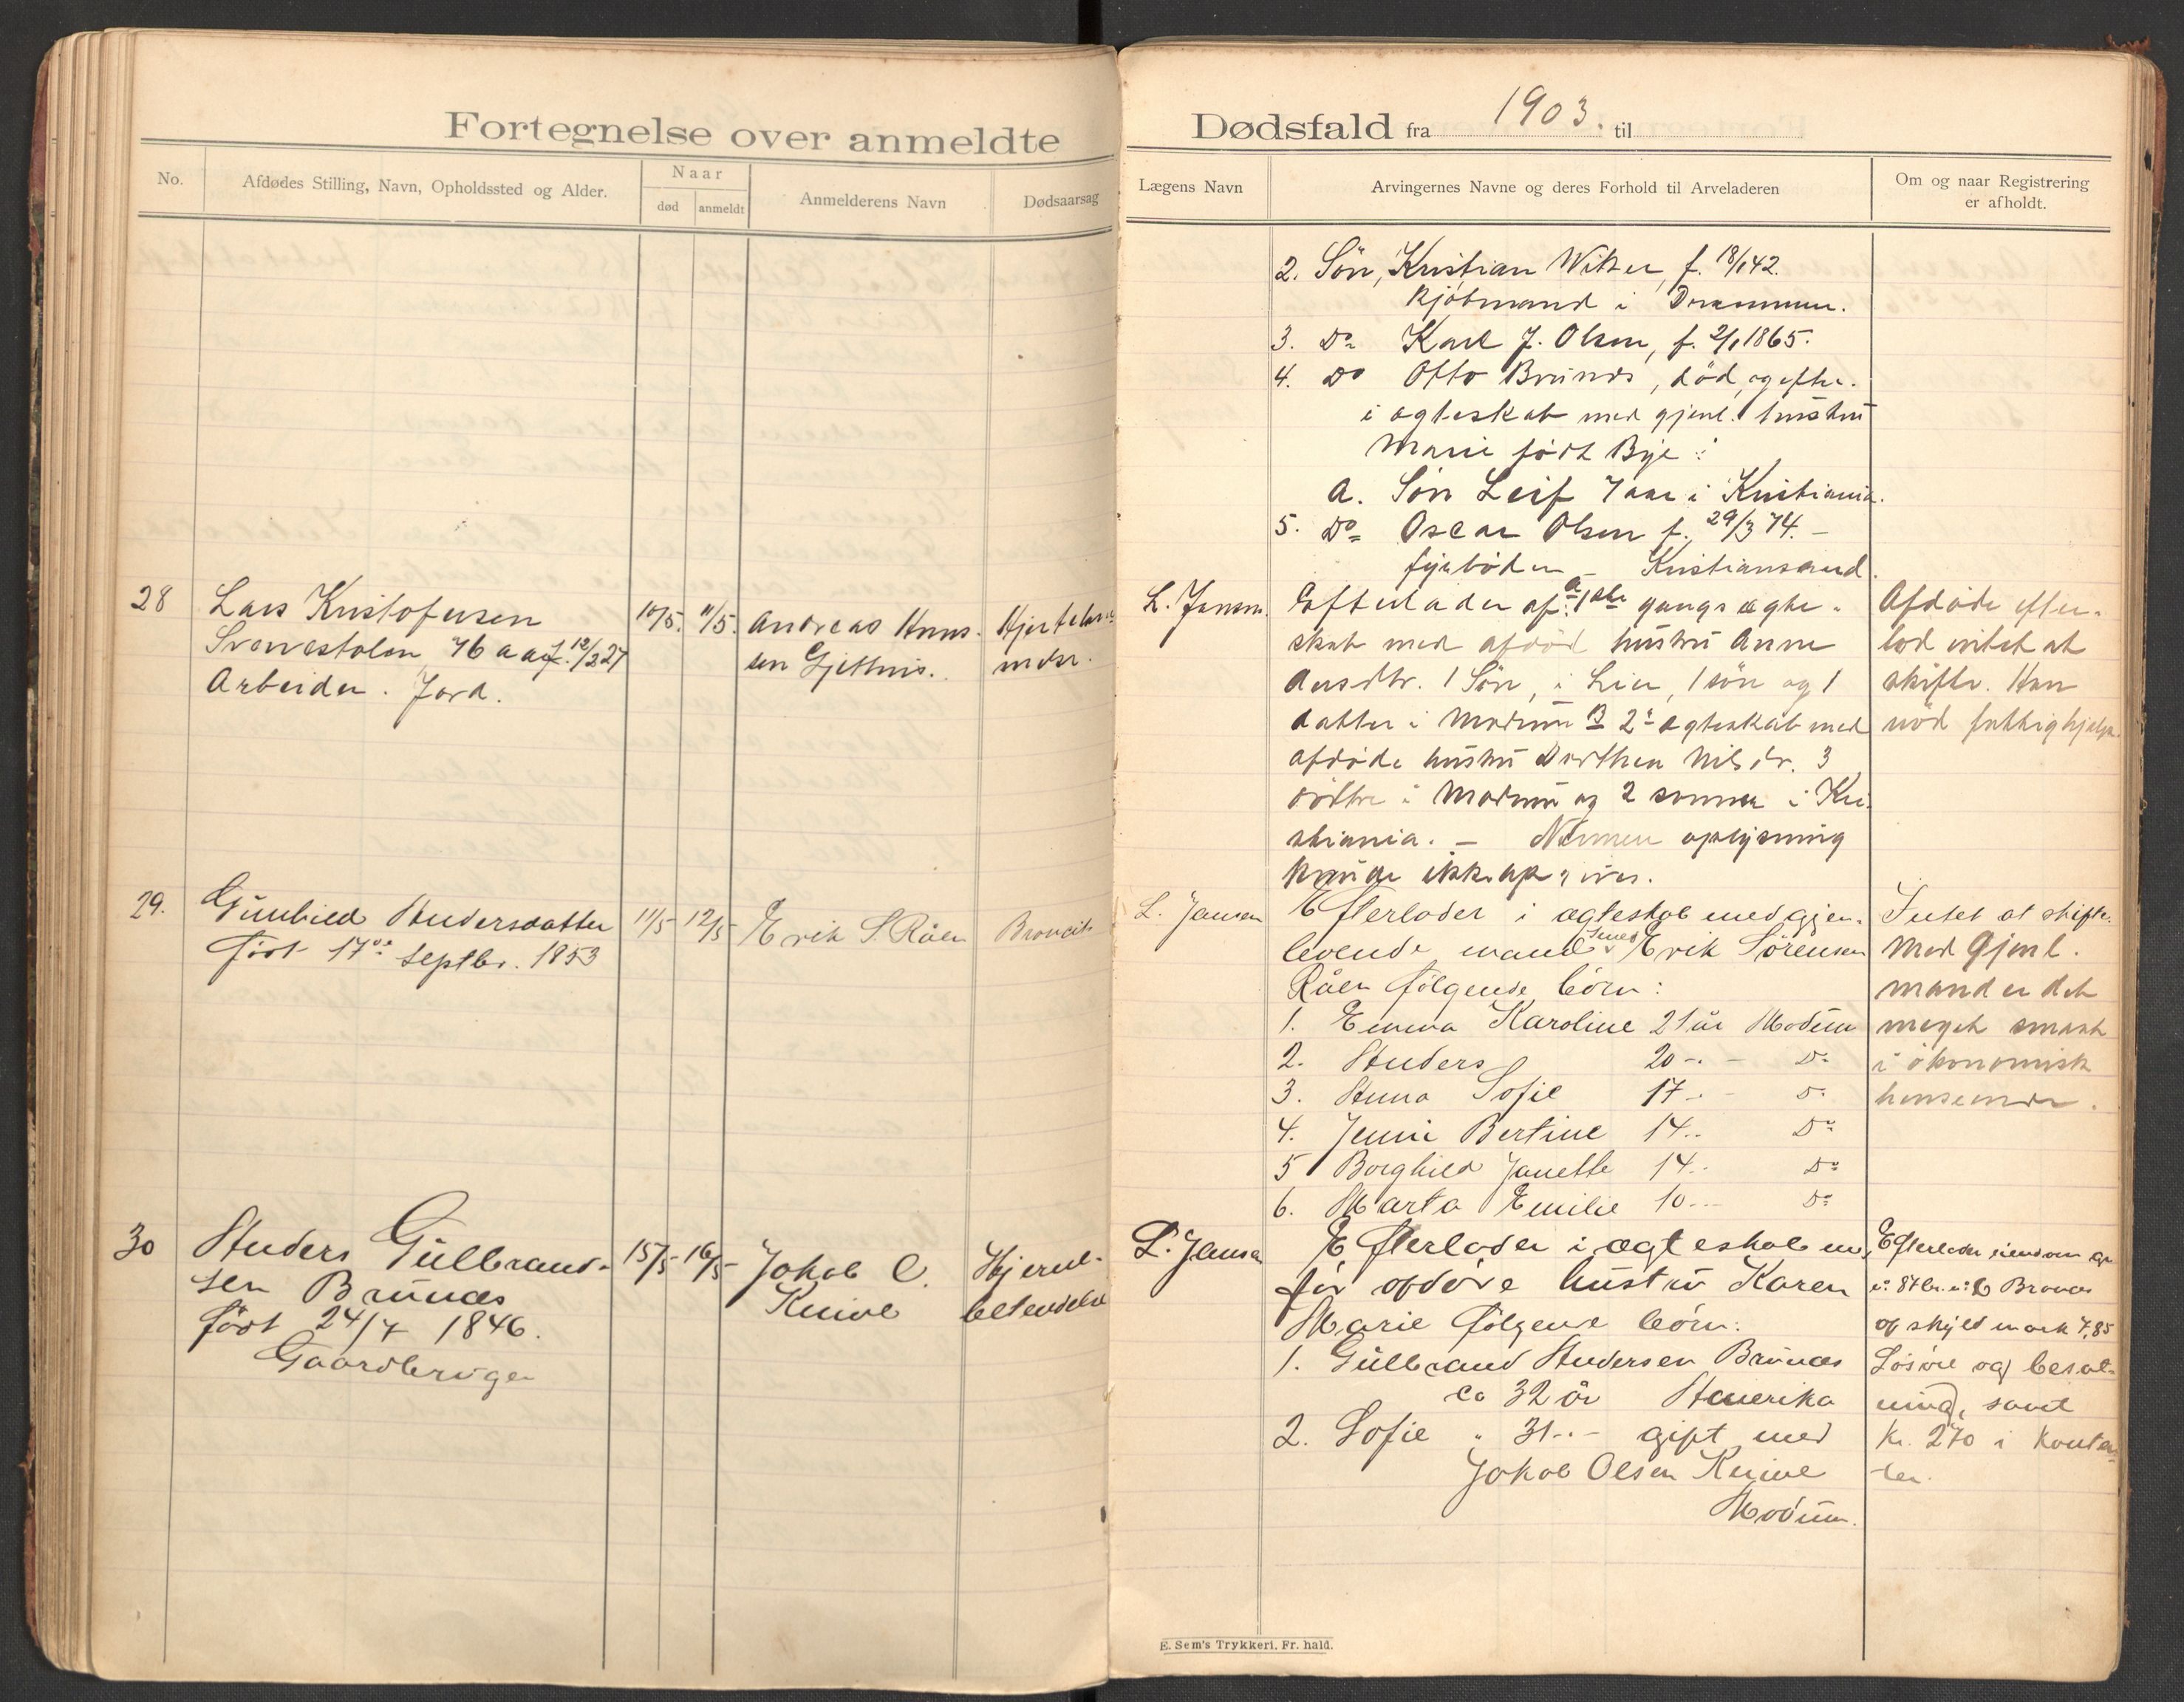 Fortegnelse over anmeldte
No.
Afdødes Stilling, Navn, Opholdssted og Alder.
Naar
død
anmeldt
Anmelderens Navn
Dødsaarsag
28
Lars Kristofersen
76 aar f. 12/2 27
Arbeider. Jord.
10/5.
11/5.
Andreas Hans-
sen Gjethus.
Hjerte
29.
Gunhild Andersdatter
født 17de Septbr. 1853
11/5
12/5
Erik S. Råen
Broncit
30
Anders Gulbrand-
sen Brunæs
født 24/7 1846.
Gaardbruger
15/5
16/5
Jakob O.
Knive
Hjerne-
betendelse
Dødsfald fra 1903. til
Lægens Navn
Arvingernes Navne og deres Forhold til Arveladeren
Om og naar Registrering
er afholdt.
2. Søn, Kristian f. 18/1 42.
Kjøbmand i Drammen.
3. Do Karl J. Olsen, f. 2/1 1865.
4. Do Otto Brunæs, død, og efter.
i ægteskab med gjenl. hustru
Marie født Bye:
a. Søn Leif 7 aar i Kristiania.
5. Do Oscar Olsen f. 29/3 74. -
fyrbøder - Kristiansand.
L. Jansen.
Efterlader af: a 1ste gangs ægte-
skab med afdød hustru Anne
1 Søn, i Lier, 1 søn og 1
datter i Modum B 2det ægteskab med
afdøde hustru Dorthea Nilsdr. 3
døttre i Modum og 2 sønner i Kri-
stiania. - Nærmere oplysning
kunde ikke opgives.
Afdøde efter-
lod intet at
skifte. Han
nød fattighjælp.
L. Jansen
Efterlader i ægteskab med gjen-
levende mand Smed Erik Sörensen
Råen følgende börn:
1. Emma Karoline 21 år Modum
2. Anders 20 - - Do
3. Anna Sofie 17 - - Do
4. Jenni Bertine 14 - Do
5 Borghild Janette 14 - Do
6. Marta Emilie 10 - Do
Intet at skifte.
Med gjenl.
mand er det
meget smaat
i økonomisk
henseende.
L. Jansen
Efterlader i ægteskab med
før afdøde hustru Karen
Marie følgende börn:
1. Gulbrand Andersen Brunæs
ca 32 år Amerika
2. Sofie " 31 - - gift med
Jakob Olsen Knive
Modum.
Efterlader eiendom
Brunæs
af skyld mark 7,85
Løsøre og besæt-
ning, samt
Kr. 270 i Kontan-
ter.
E. Sem's Trykkeri. Fr. hald.